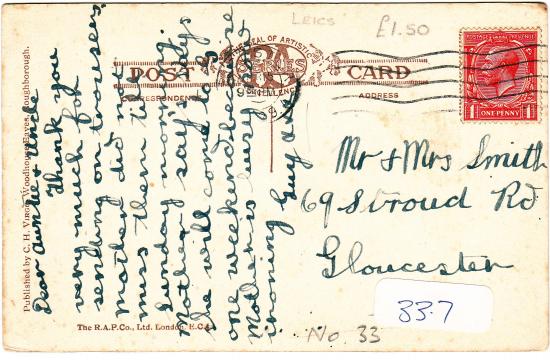 LEICS
£1.50
THE SEAL OF ARTISTIC
EXCELLENCE
SERIES
POST CARD
CORRESPONDENCE
ADDRESS
POSTAGE REVENUE
1 ONE PENNY 1
Published by C. H. Woodhouse Eaves, Loughborough.
Dear Auntie & Uncle
Thank you
very much for
sending on trousers
mother did not
miss them until
Sunday morning.
Mother says
he will come
one weekend
Mother is busy
ironing Guy
Mr & Mrs Smith
69 Stroud Rd
Gloucester
33.7
The R.A.P. Co., Ltd. London, E.C.4
No. 33